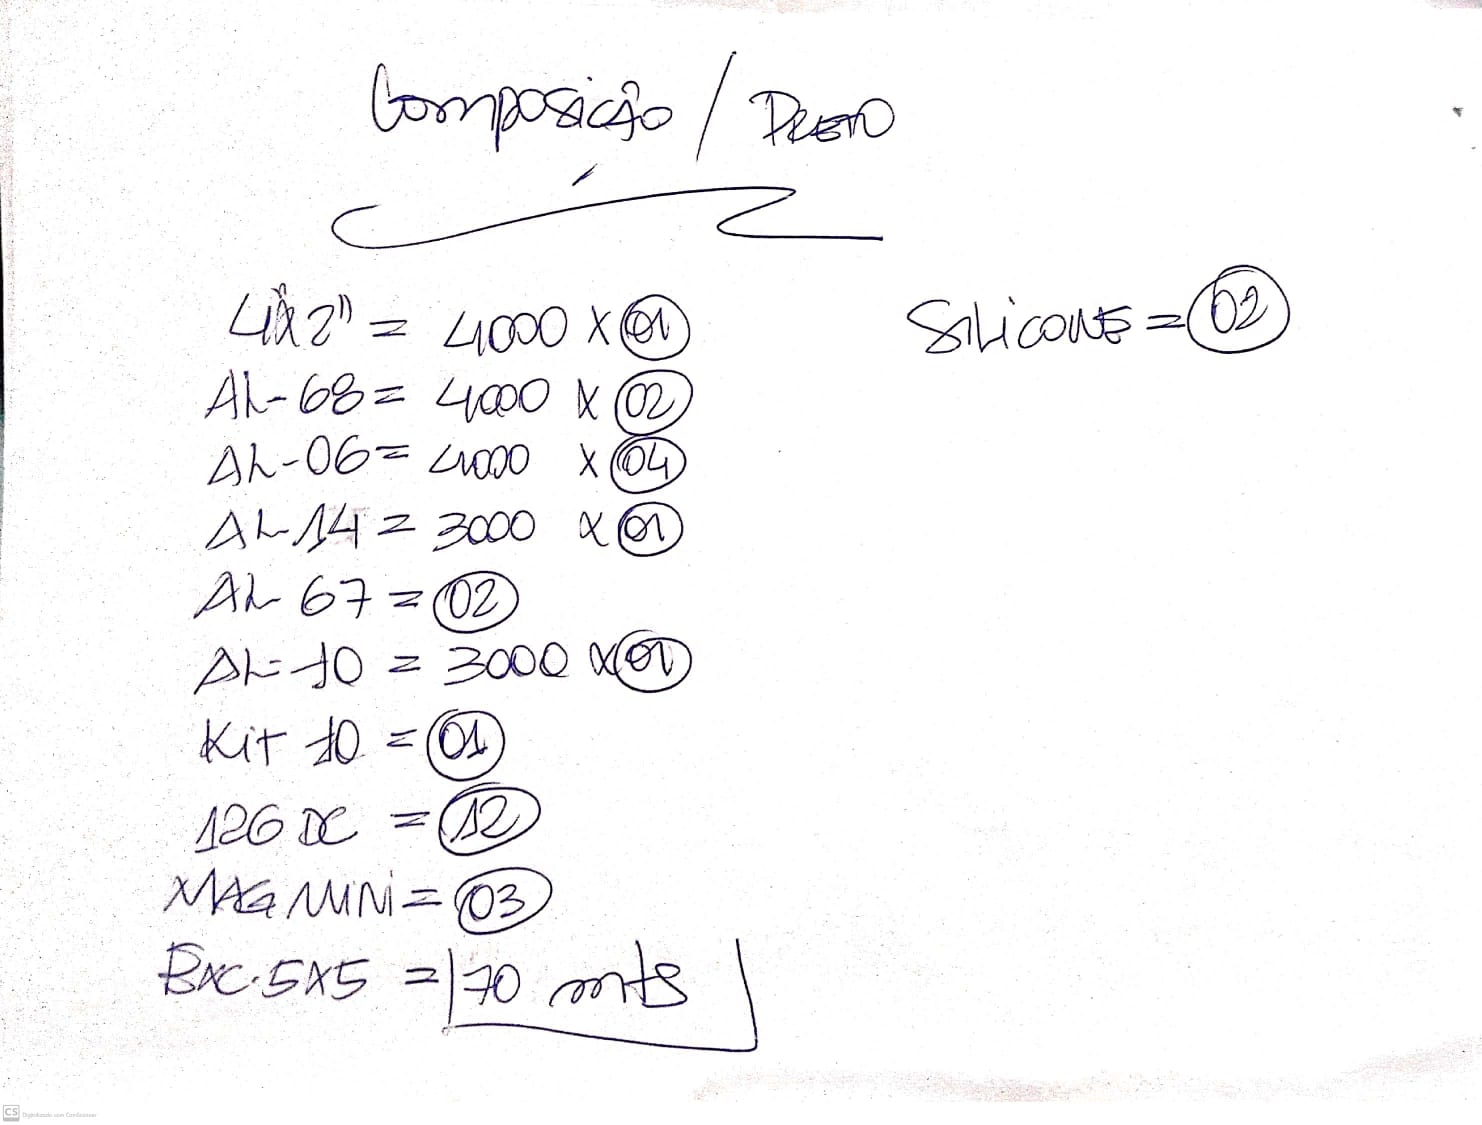 Composição / PRETO
4"x2" = 4000 x 01
SiLiCONE = 02
AL-68 = 4000 x 02
AL-06 = 4000 x 04
AL-14 = 3000 x 01
AL 67 = 02
AL-70 = 3000 x 01
Kit 70 = 01
126 DC = 12
MAG MiNi = 03
BXC.5X5 = 70 mts
CS Digitalizado com CamScanner